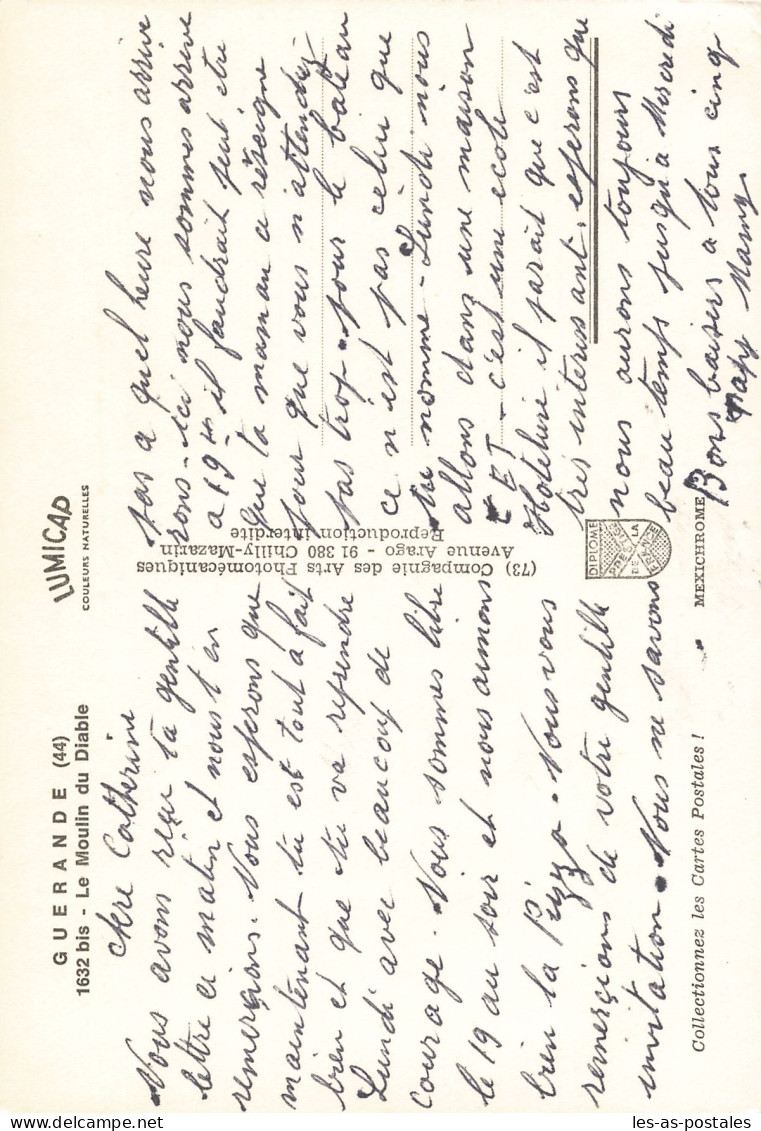 GUERANDE (44)
1632 bis - Le Moulin du Diable
LUMICAP
COULEURS NATURELLES
chere Catherine
Nous avons reçu ta gentille
lettre ce matin et nous t'en
remerçions. Nous esperons que
maintenant tu est tout a fait
bien et que tu va reprendre
Lundi avec beaucoup de
courage. Nous sommes libre
le 19 au soir et nous aimons
bien la Pizza. Nous vous
remerçions de votre gentille
invitation. Nous ne savons
pas a quel heure nous arrive
rons - ici nous sommes arrive
a 19 il faudrait peut etre
que ta maman ce renseigne
pour que vous n'attendiez
pas trop. pour le bateau
ce n'est pas celui que
tu nomme - Lundi nous
allons dans une maison
CET - c'est une ecole
Hoteliere il parait que c'est
tres interessant, esperons que
nous aurons toujours
beau temps jusqu'a Mercredi
Bons baisers a tous cinq
Papy Mamy
(73) Compagnie des Arts Photomécaniques
Avenue Arago - 91 380 Chilly-Mazarin
Reproduction interdite
DIPLOME
PRESTIGE
DE LA
FRANCE
MEXICHROME
Collectionnez les Cartes Postales !
les-as-postales
Delcampe.net